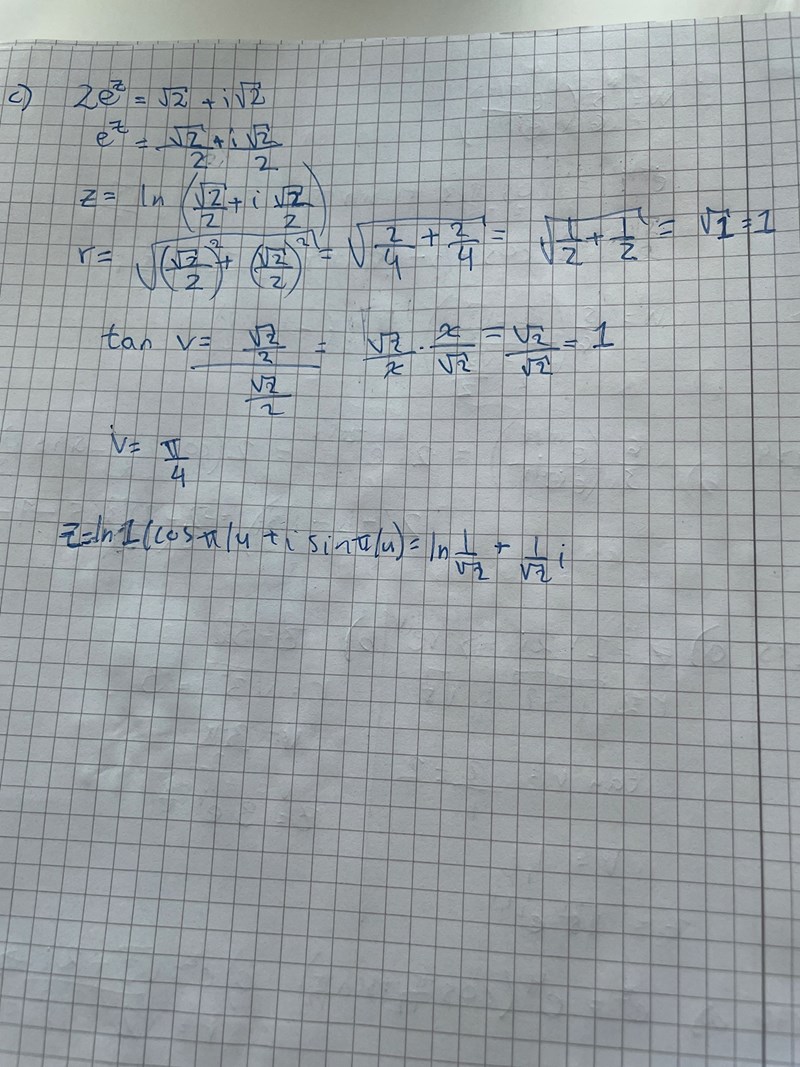 c) 2e^z = √2 + i√2
e^z = √2/2 + i √2/2
z = ln (√2/2 + i √2/2)
r = √((√2/2)^2 + (√2/2)^2) = √(2/4 + 2/4) = √(1/2 + 1/2) = √1 = 1
tan v = (√2/2)/(√2/2) = √2/2 · 2/√2 = √2/√2 = 1
v = π/4
z = ln 1 (cos π/4 + i sin π/4) = ln 1/√2 + 1/√2 i